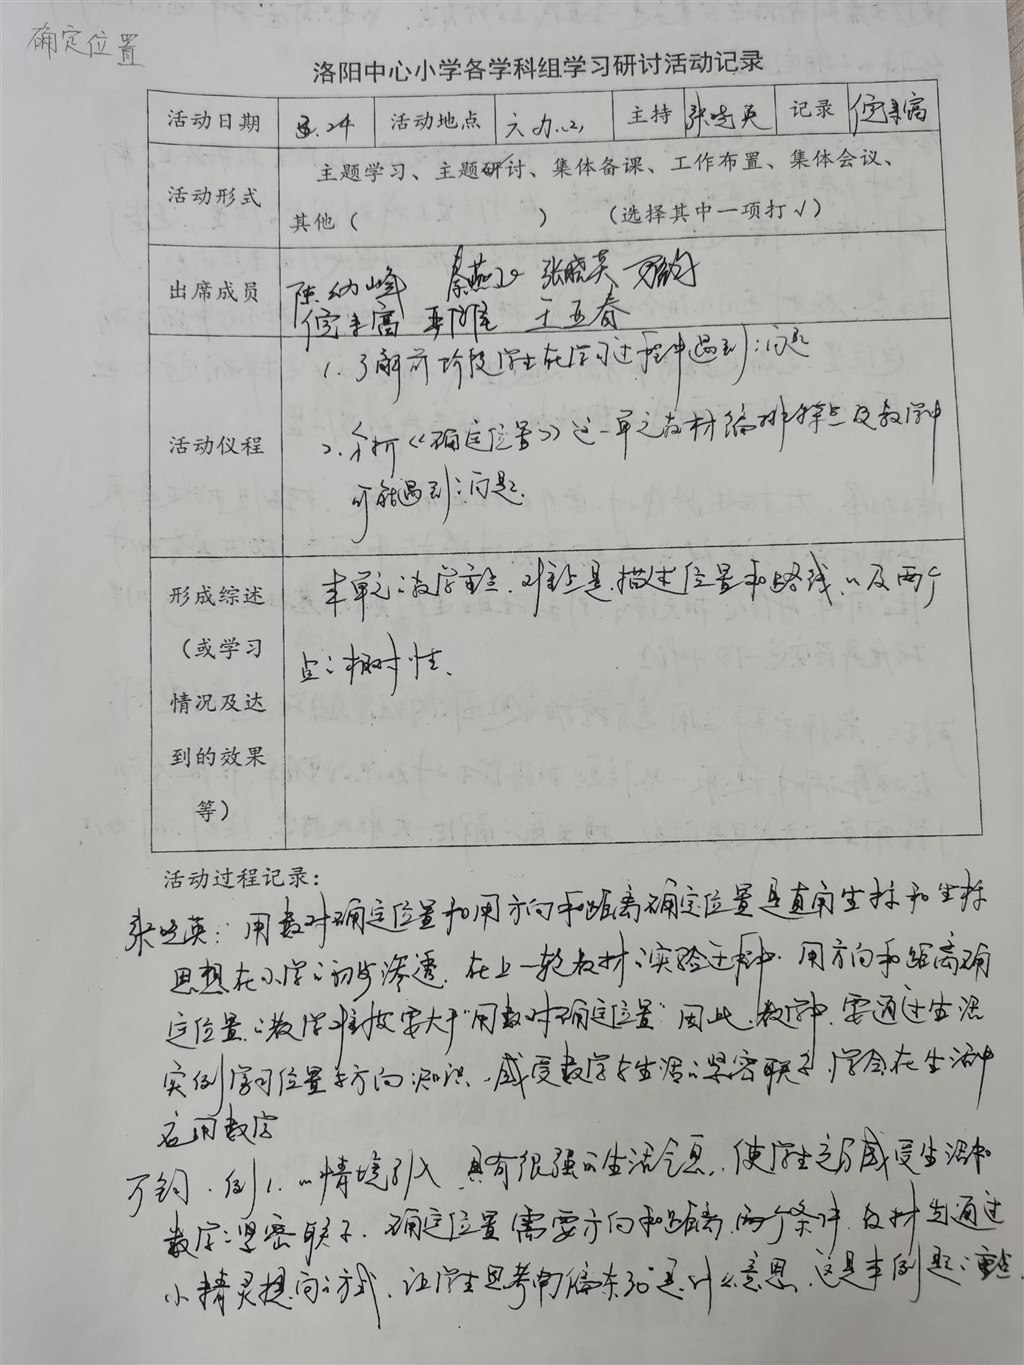 确定位置
洛阳中心小学各学科组学习研讨活动记录
活动日期 3.24 活动地点 六办(2) 主持 张晓英 记录 倪丰高
活动形式 主题学习、主题研讨、集体备课、工作布置、集体会议、
其他（ ） （选择其中一项打√）
出席成员 陈幼峰 秦燕 张晓英 万钧
倪丰高 王五春
活动仪程 1. 了解前阶段学生在学习过程中遇到的问题
2. 分析《确定位置》这一单元教材编排特点及教学中
可能遇到的问题.
形成综述（或学习情况及达到的效果等）
本单元的教学重点、难点是描述位置和路线以及两个
点的相对性.
活动过程记录：
张晓英：用数对确定位置和用方向和距离确定位置是直角坐标和坐标
思想在小学的初步渗透. 在上一轮教材的实验过程中. 用方向和距离确
定位置的教学难度要大于"用数对确定位置" 因此，教学中，要通过生活
实例学习位置与方向的知识，感受数学与生活的紧密联系，学会在生活中
应用数学
万钧. 例1. 的情境引入，具有很强的生活气息，使学生充分感受生活和
数学的紧密联系. 确定位置需要方向和距离两个条件. 教材先通过
小精灵提问的方式，让学生思考东偏南30°是什么意思，这是本例题的重点.